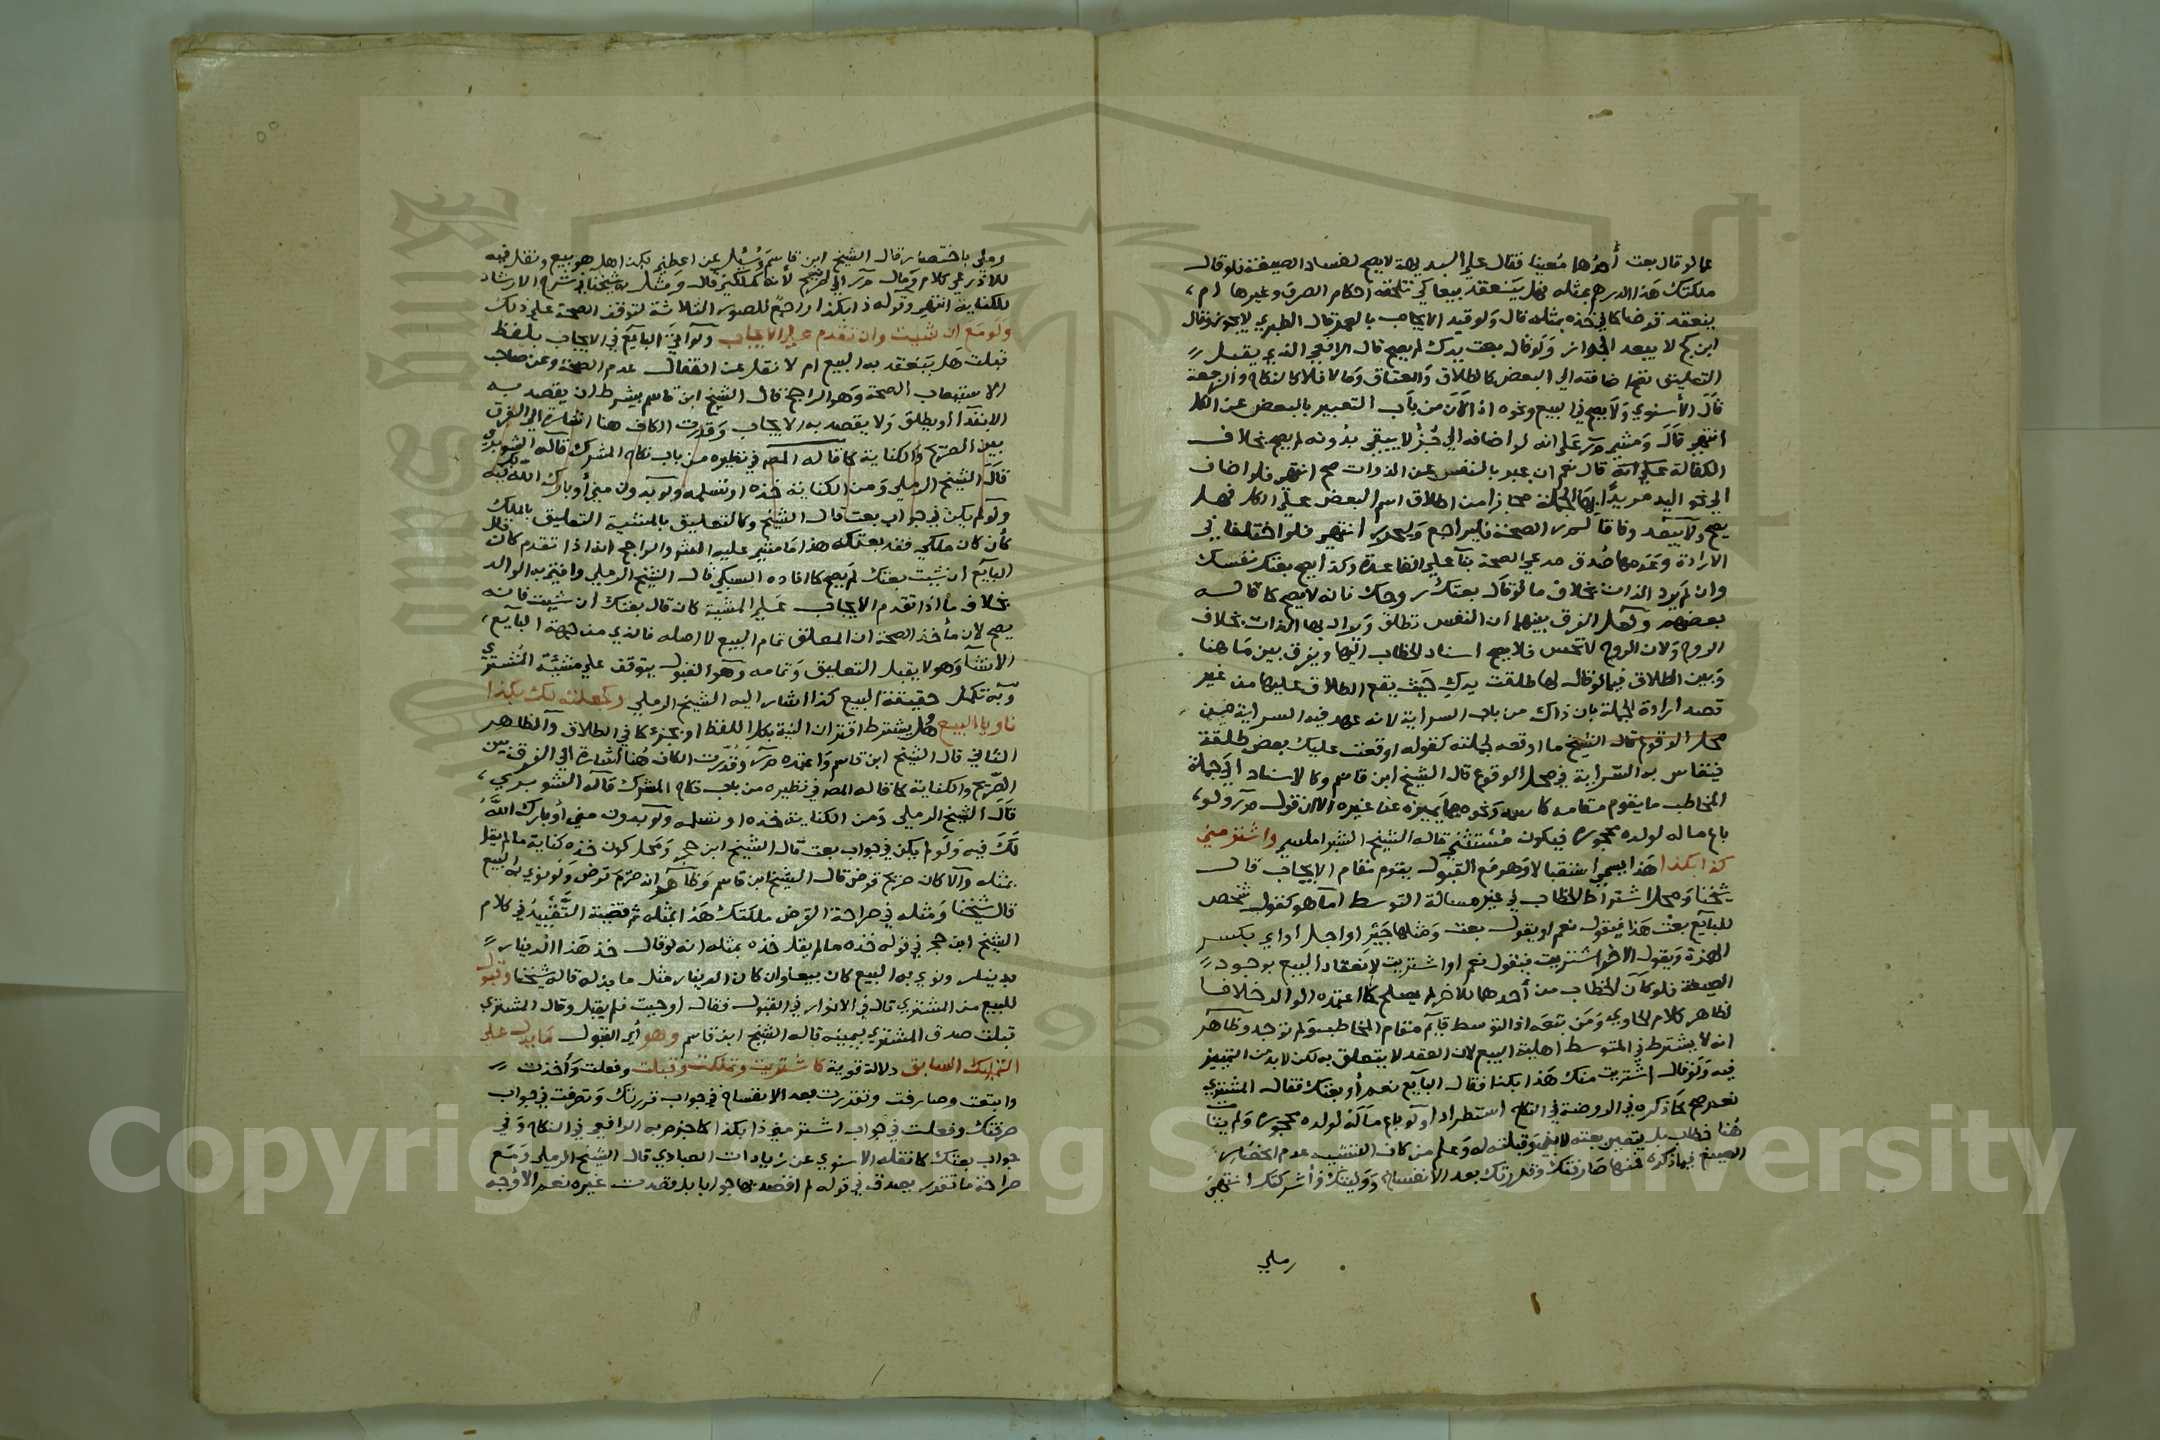 عما لو قال بعت أحدهما معينا فقال علي البديهة لا يصح لفساد الصيغة فلو قال
ملكتك هذا الدرهم بمثله فهل ينعقد بيعا كي تلحقه احكام الصرف وغيرها ام
ينعقد قرضا كما في خذه بمثله قال ولو قيد الايجاب بالعمر قال الطبري لا يجوز وقال
ابن كج لا يبعد الجواز ولو قال بعت يدك لم يصح قال الرافعي الذي يقبل
التعليق تصح اضافته الي البعض كالطلاق والعتاق وما لا فلا كالنكاح والرجعة
قال الأسنوي ولا يصح في البيع ونحوه اذ الآن من باب التعبير بالبعض عن الكل
انتهي قال ومشي مر علي انه لو اضافه الي جزء لا يبقي بدونه لم يصح بخلاف
الكفالة علي انه قال نعم ان عبر بالنفس عن الذوات صح انتهي فلو اضاف
الي نحو اليد مريدا بها الجملة مجازا من اطلاق اسم البعض علي الكل فهل
يصح ولا يبعد وفاقا لمر الصحة فليراجع وليحرر انتهي فلو اختلفا في
الارادة وعدمها صدق مدعي الصحة بناء علي القاعدة وكذا يصح بعتك نفسك
وان لم يرد الذات بخلاف ما لو قال بعتك روحك فانه لا يصح كما قاله
بعضهم ولعل الفرق بينهما أن النفس تطلق ويراد بها الذات بخلاف
الروح ولان الروح لا تحس فلا يصح اسناد الخطاب اليها ويفرق بين ما هنا
وبين الطلاق فيما لو قال لها طلقت يدك حيث يقع الطلاق عليها من غير
قصد ارادة الجملة بان ذاك من باب السراية لانه عهد فيه السراية حين
محل الوقوع قال الشيخ ما اوقعه لجملته كقوله اوقعت عليك بعض طلقة
فيقاس به السراية في محل الوقوع قال الشيخ ابن قاسم وكالاسناد الي جملة
المخاطب ما يقوم مقامه كاسمه ونحوه مما يميزه عن غيره الا ان قول مر ولو
باع ماله لولده محجوره فيكون مستثني قاله الشيخ الشبراملسي واشتر مني
كذا بكذا هذا يسمي استقبالا وهو مع القبول يقوم مقام الايجاب قال
شيخنا ومحل اشتراط الخطاب في غير مسالة التوسط اما هو كقول شخص
للبايع بعت هذا فيقول نعم او يقول بعت ومثلها جير او اجل او اي بكسر
الهمزة ويقول الاخر اشتريت فيقول نعم او اشتريت لانعقاد البيع بوجود
الصيغة فلو كان الخطاب من أحدهما للاخر لم يصح كما اعتمده الوالد خلافا
لظاهر كلام الحاوي ومن تبعه اذ التوسط قايم مقام المخاطب ولم توجد وظاهر
انه لا يشترط في المتوسط اهلية البيع لان العقد لا يتعلق به لكن لا بد من التمييز
فيه ولو قال اشتريت منك هذا بكذا فقال البايع نعم أو بعتك فقال المشتري
نعم صح كما ذكره في الروضة في النكاح استطرادا ولو باع ماله لولده محجوره ولم يتأت
هنا خطاب بل يتعين بعته لابني وقبلته له وعلم من كاف التشبيه عدم انحصار
الصيغ فيما ذكره فمنها صارفتك وقررتك بعد الانفساخ ووليتك وأشركتك انتهي
رملي
رملي باختصار قال الشيخ ابن قاسم وسئل عن اعطني بكذا هل هو بيع ونقل فيه
للاذرعي كلام وقال مر الي صريح لأنه كملكني قال ومثل به شيخنا في شرح الارشاد
للكناية انتهي وقوله ذا بكذا راجع للصور الثلاثة لتوقف الصحة علي ذلك
ولو مع ان شيت وان تقدم علي الايجاب ولو أتي البايع في الايجاب بلفظ
قبلت هل ينعقد به البيع ام لا نقل عن القفال عدم الصحة وعن صاحب
الاستيعاب الصحة وهو الراجح قال الشيخ ابن قاسم بشرط ان يقصد به
الانشاء أو يطلق ولا يقصد به الايجاب وقدرت الكاف هنا اشارة الي الفرق
بين الصريح والكناية كما قاله المص في نظيره من باب نكاح المشرك قاله الشوبري
قال الشيخ الرملي ومن الكناية خذه او تسلمه ولو بدون مني أو بارك الله لك فيه
ولو لم يكن في جواب بعت قال الشيخ وكالتعليق بالمشية التعليق بالملك
كأن كان ملكي فقد بعتكه هذا ما مشي عليه المتن والراجح انه اذا تقدم كان قال
البايع ان شيت بعتك لم يصح كما افاده السبكي قال الشيخ الرملي وافتي به الوالد
بخلاف ما اذا تقدم الايجاب علي المشية كان قال بعتك ان شيت فانه
يصح لان مأخذ الصحة ان المعلق تمام البيع لا اصله فالذي من جهة البايع
الانشاء وهو لا يقبل التعليق وتمامه وهو القبول يتوقف علي مشيئة المشتري
وبه تكمل حقيقة البيع كذا اشار اليه الشيخ الرملي وكجعلته لك بكذا
ناويا البيع هل يشترط اقتران النية بكل اللفظ او بجزئه كما في الطلاق والظاهر
الثاني قال الشيخ ابن قاسم واعتمده مر وقدرت الكاف هنا اشارة الي الفرق بين
الصريح والكناية كما قاله المص في نظيره من باب نكاح المشرك قاله الشوبري
قال الشيخ الرملي ومن الكناية خذه او تسلمه ولو بدون مني أو بارك الله
لك فيه ولو لم يكن في جواب بعت قال الشيخ ابن حجر ومحل كون خذه كناية ما لم يقل
بمثله والا كان صريح قرض قال الشيخ ابن قاسم وظاهره انه صريح قرض ولو نوي به البيع
قال شيخنا ومثله في صراحة القرض ملكتك هذا بمثله ثم قضية التقييد في كلام
الشيخ ابن حجر في قوله خذه ما لم يقل خذه بمثله انه لو قال خذ هذا الدينار
بدينار ونوي به البيع كان بيعا وان كان الدينار مثل ما بذله قاله شيخنا وقبول
للبيع من المشتري قال في الانوار في القبول فقال أوجبت فلم يقبل وقال المشتري
قبلت صدق المشتري بيمينه قاله الشيخ ابن قاسم وهو أي القبول ما يدل علي
التمليك السابق دلالة قوية كاشتريت وتملكت وقبلت وفعلت وأخذت
وابتعت وصارفت وتقررت بعد الانفساخ في جواب قررتك وتعرفت في جواب
عرفتك وفعلت في جواب اشتر مني ذا بكذا كما جزم به الرافعي في النكاح وفي
جواب بعتك كما نقله الاسنوي عن زيادات العبادي قال الشيخ الرملي ومع
صراحة ما تقدم يصدق في قوله لم اقصد بها جوابا بل قصدت غيره نعم الأوجه